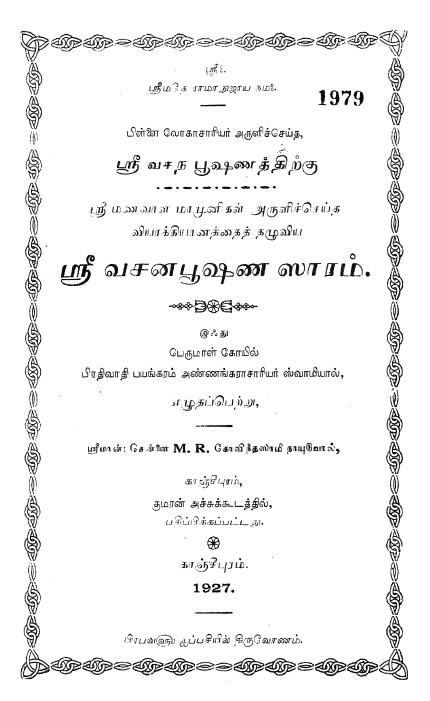 ஸ்ரீ:
ஸ்ரீமதே ராமாநுஜாய நம:
1979
பிள்ளை லோகாசாரியர் அருளிச்செய்த,
ஸ்ரீ வசந பூஷணத்திற்கு
ஸ்ரீ மணவாள மாமுனிகள் அருளிச்செய்த
வியாக்கியானத்தைத் தழுவிய
ஸ்ரீ வசனபூஷண ஸாரம்.
இஃது
பெருமாள் கோயில்
பிரதிவாதி பயங்கரம் அண்ணங்கராசாரியர் ஸ்வாமியால்,
எழுதப்பெற்று,
ஸ்ரீமான்: சென்னை M. R. கோவிந்தஸாமி நாயுடுவால்,
காஞ்சீபுரம்,
குமரன் அச்சுக்கூடத்தில்,
பதிப்பிக்கப்பட்டது.
காஞ்சீபுரம்.
1927.
பிரபவளு ஐப்பசியில் திருவோணம்.